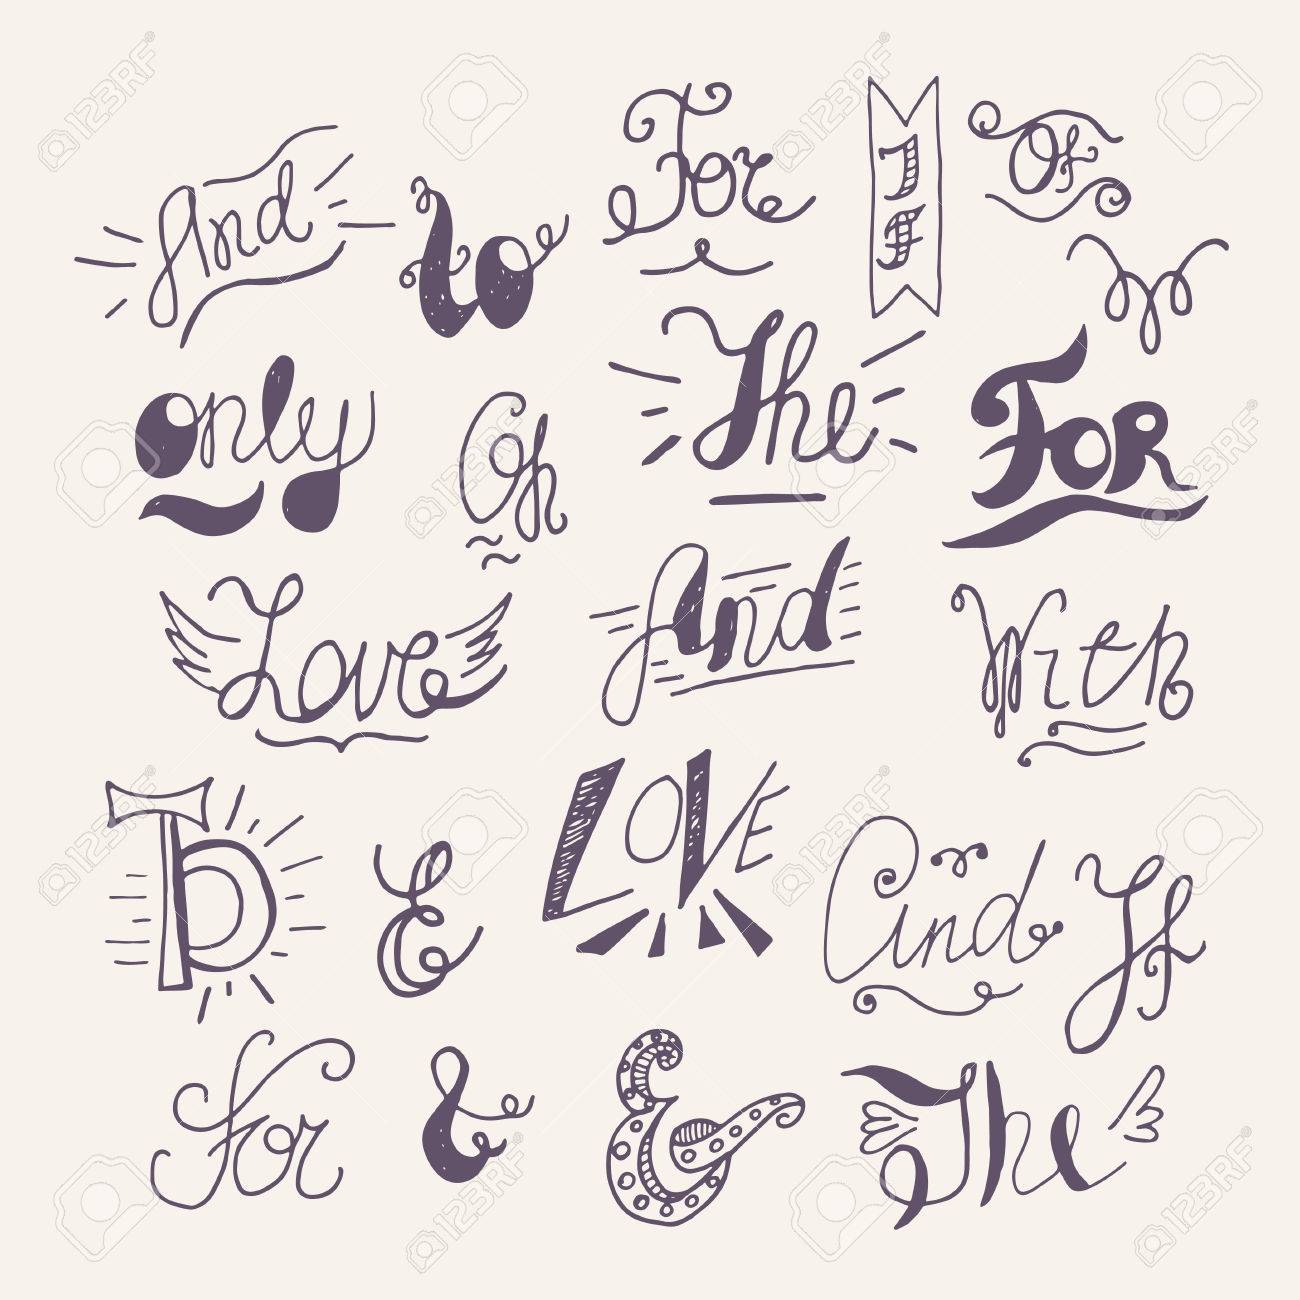 And to For If Of
only Oh The For
Love And With
To & LOVE And If
For & & The
123RF